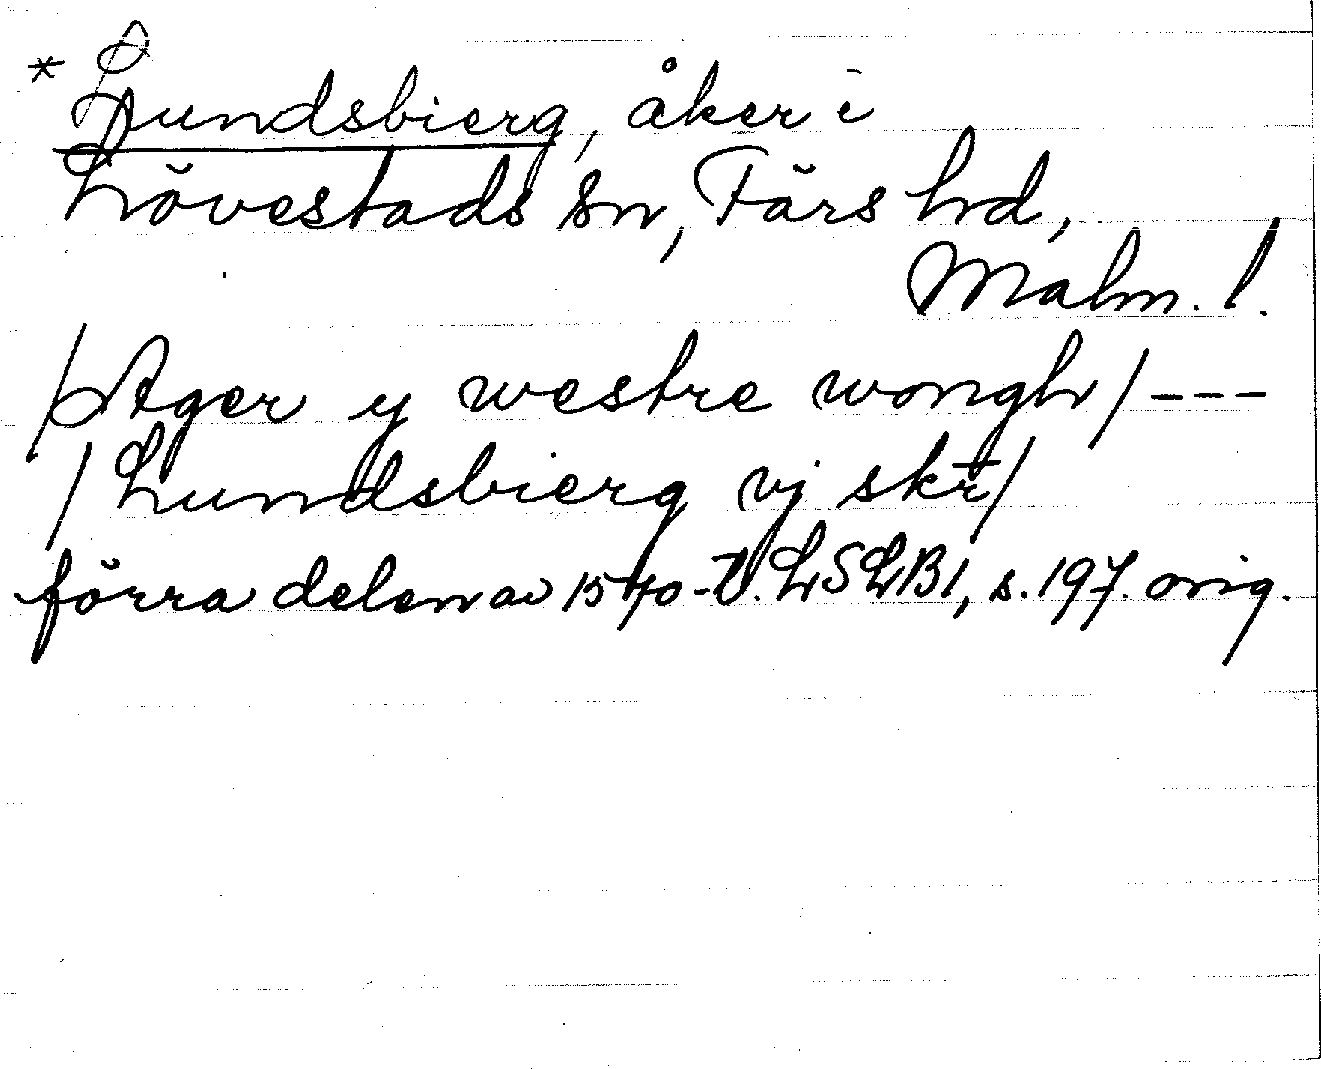 * Lundsbierg, åker i
Lövestads sn, Färs hd,
Malm. l.
/Ager y westre wongh/ ---
/Lundsbierg vj skr̄/
förra delen av 1540-t. LSLB1, s. 197. orig.